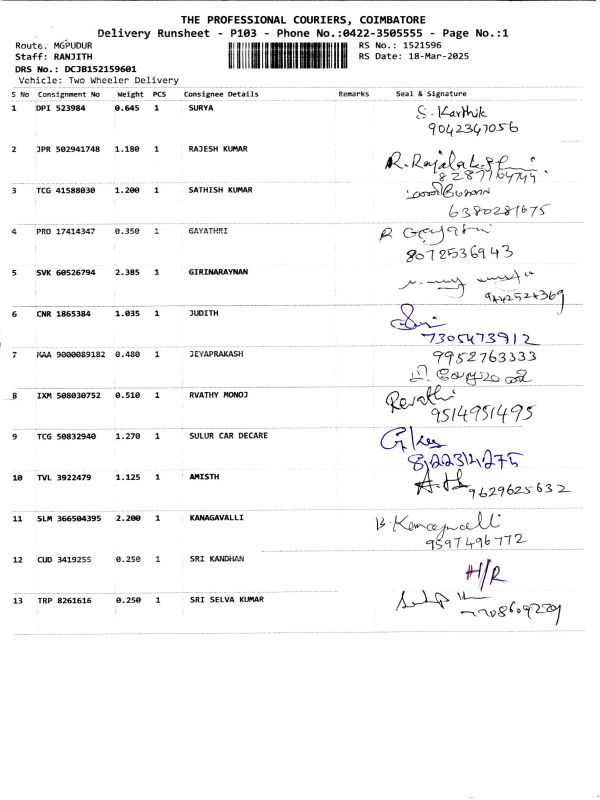 THE PROFESSIONAL COURIERS, COIMBATORE
Delivery Runsheet - P103 - Phone No.:0422-3505555 - Page No.:1
Route: MGPUDUR RS No.: 1521596
Staff: RANJITH RS Date: 18-Mar-2025
DRS No.: DCJB152159601
Vehicle: Two Wheeler Delivery
S No Consignment No Weight PCS Consignee Details Remarks Seal & Signature
1 DPI 523984 0.645 1 SURYA S. Karthik
9042347056
2 JPR 502941748 1.180 1 RAJESH KUMAR
3 TCG 41588030 1.200 1 SATHISH KUMAR
6380281675
4 PRO 17414347 0.350 1 GAYATHRI R Gayatri
8072536943
5 SVK 60526794 2.385 1 GIRINARAYNAN
6 CNR 1865384 1.035 1 JUDITH
7305473912
7 MAA 9000089182 0.480 1 JEYAPRAKASH 9952763333
8 IXM 508030752 0.510 1 RVATHY MONOJ Revathi
9514951495
9 TCG 50832940 1.270 1 SULUR CAR DECARE
10 TVL 3922479 1.125 1 AMISTH 9629625632
11 SLM 366504395 2.200 1 KANAGAVALLI
9597496772
12 CUD 3419255 0.250 1 SRI KANDHAN H/R
13 TRP 8261616 0.250 1 SRI SELVA KUMAR